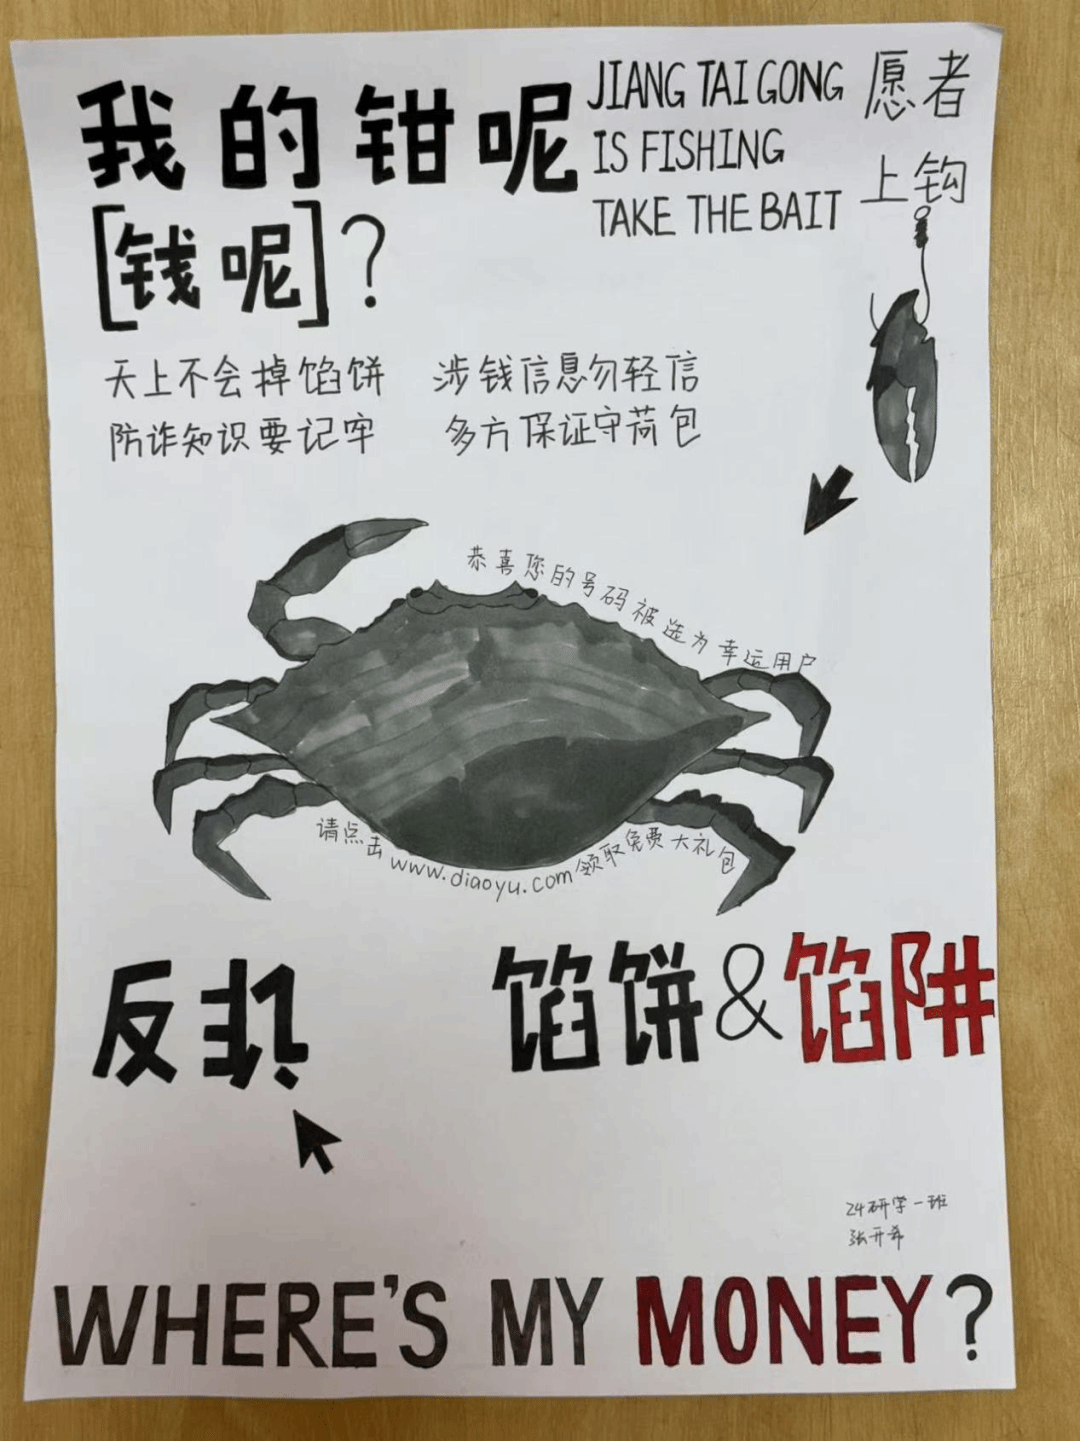 我的钳呢
[钱呢]?
JIANG TAI GONG
IS FISHING
TAKE THE BAIT
愿者
上钩
天上不会掉馅饼 涉钱信息勿轻信
防诈知识要记牢 多方保证守荷包
恭喜您的号码被选为幸运用户
请点击www.diaoyu.com领取免费大礼包
反诈
馅饼&馅阱
24研学一班
张开希
WHERE'S MY MONEY?